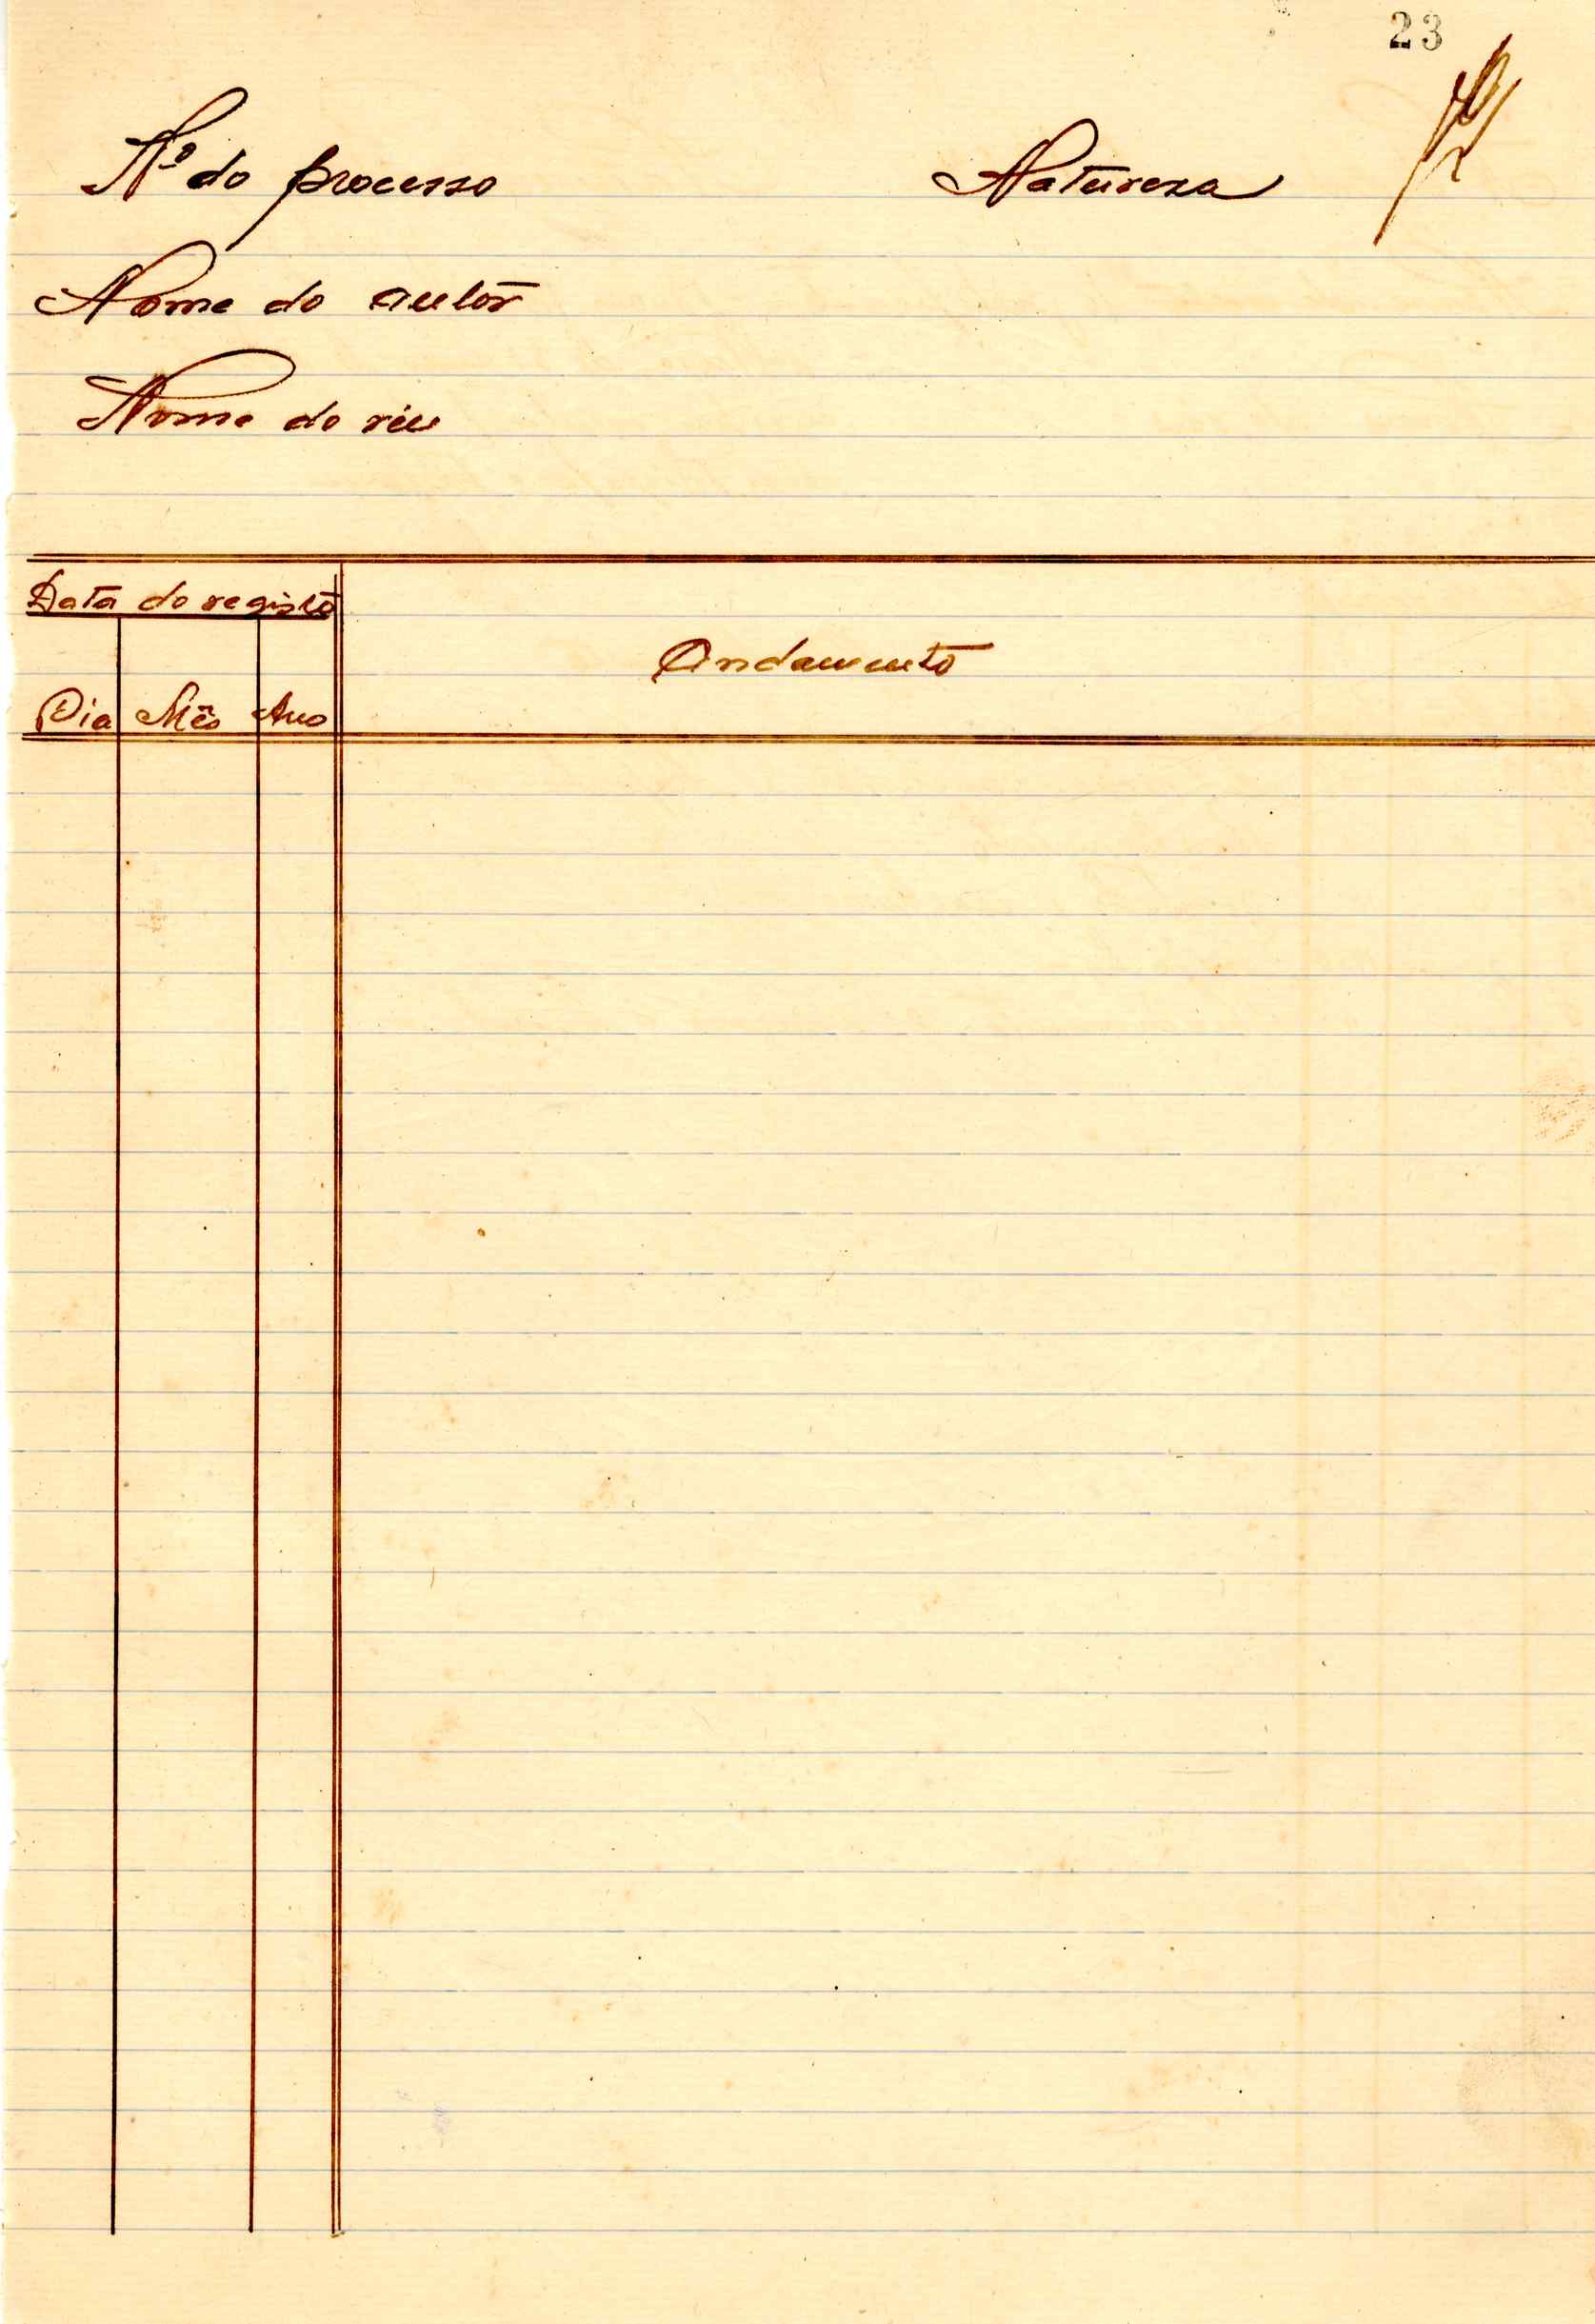 23
Nº do processo Natureza
Nome do autor
Nome do réu
Data do registo
Andamento
Dia Mês Ano